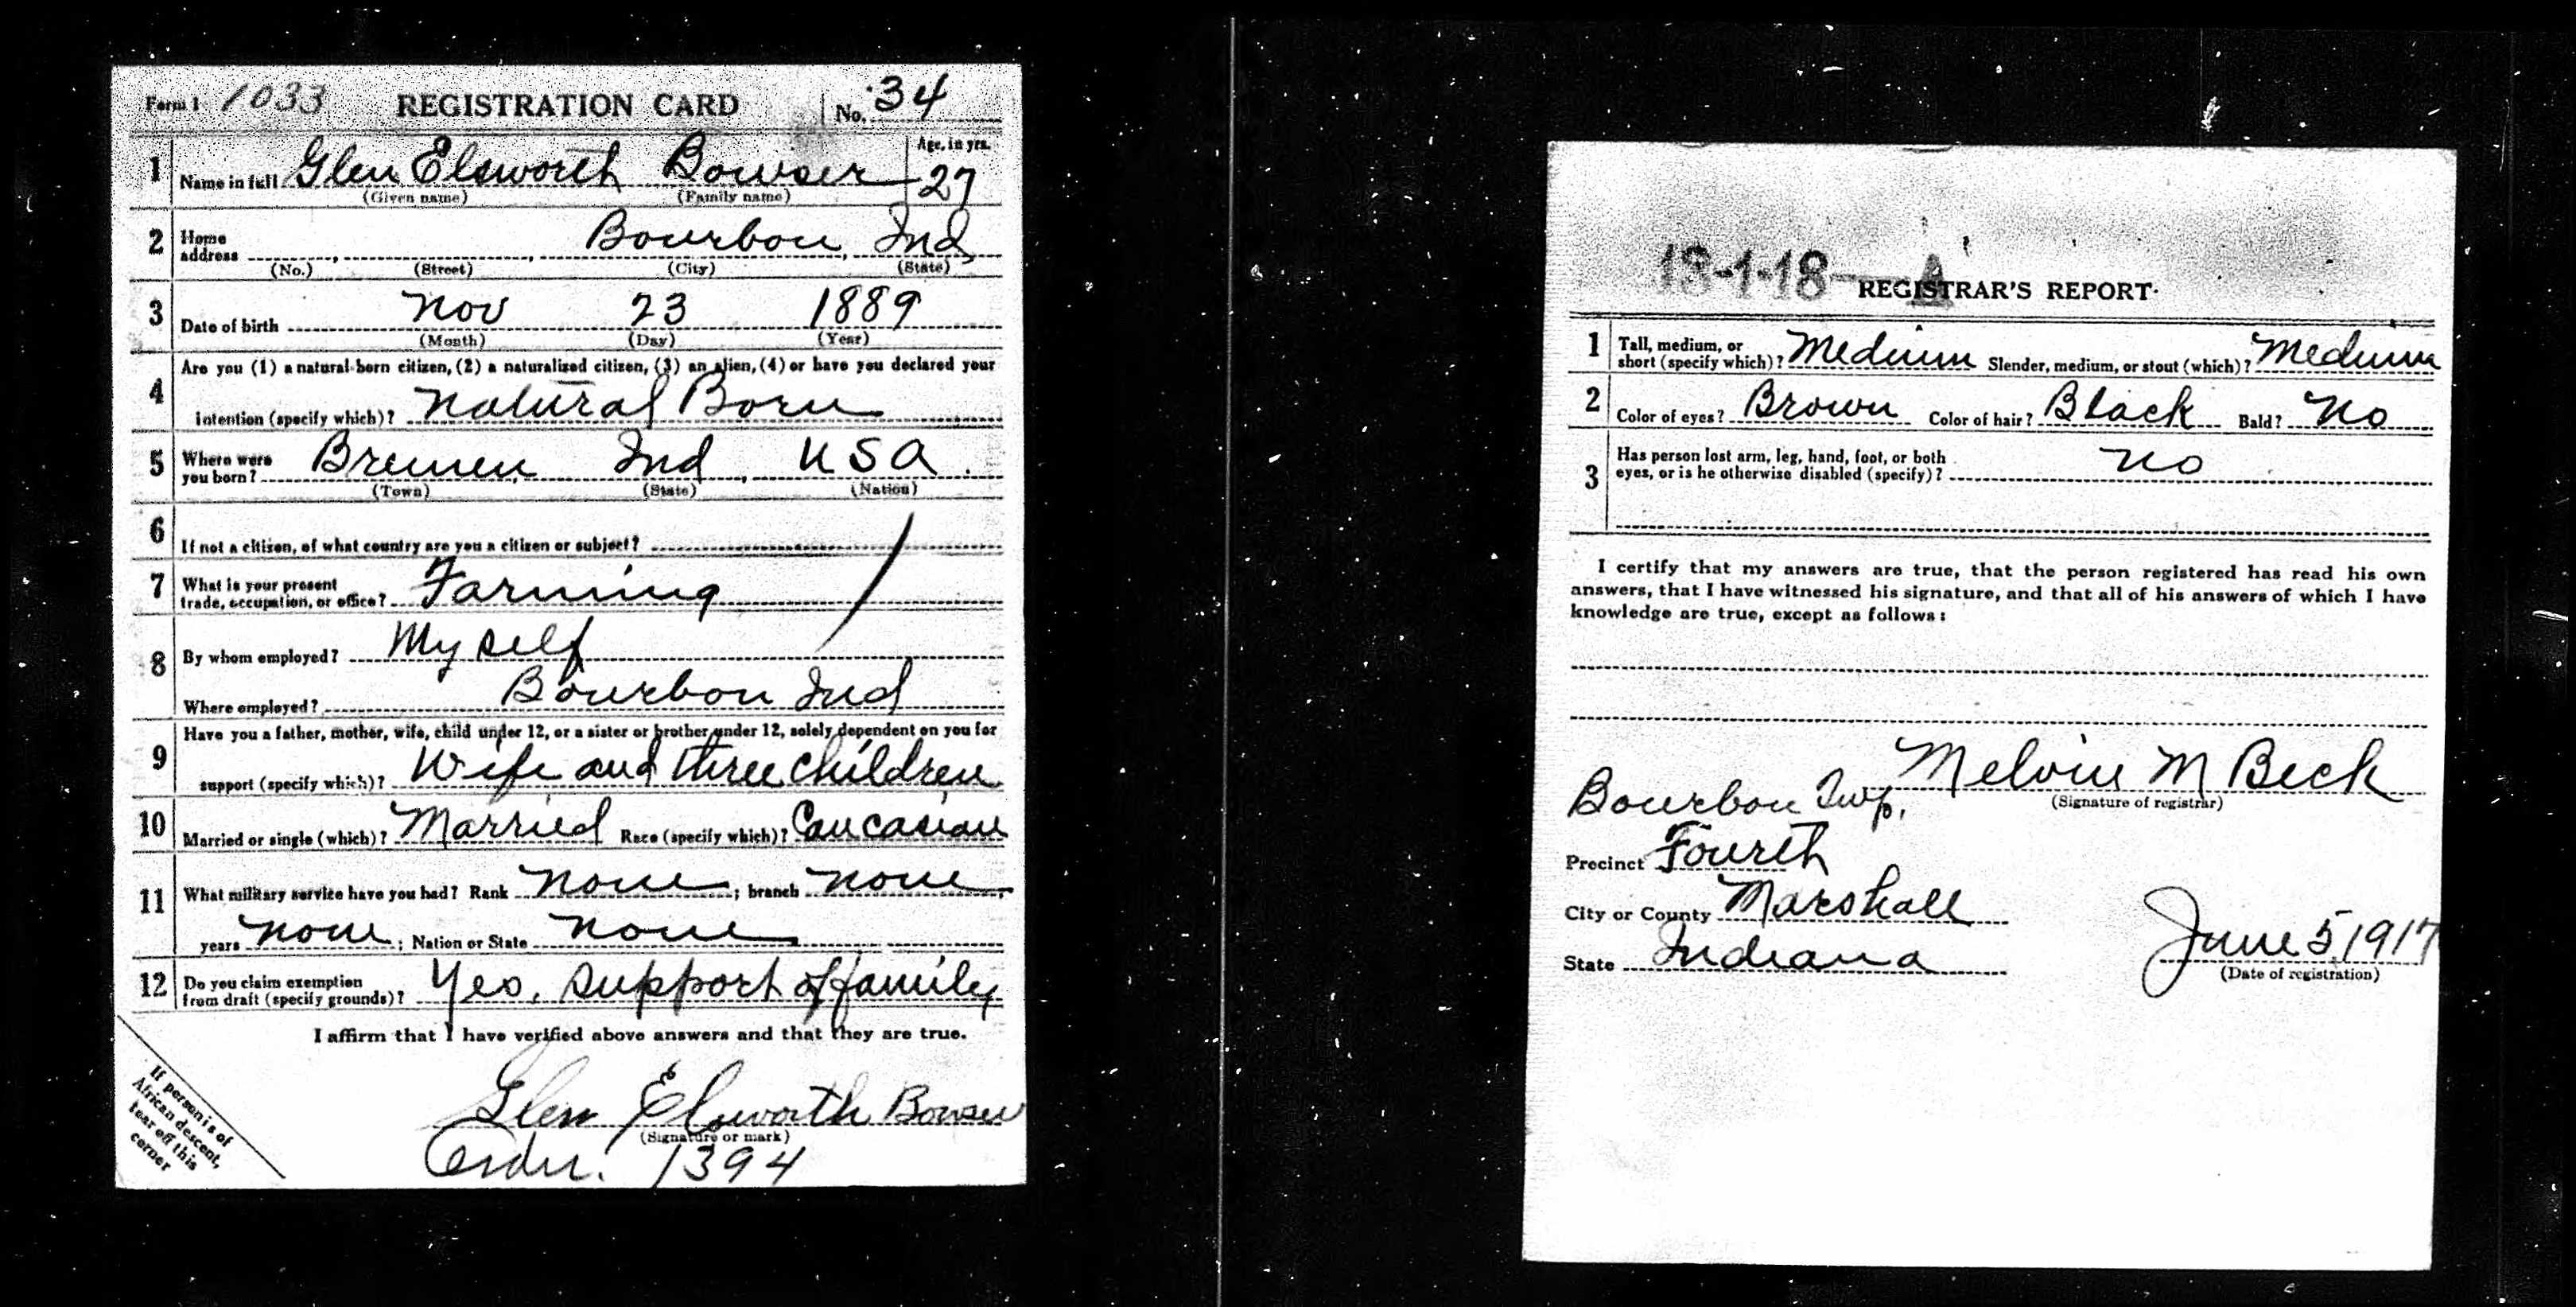 Form 1 1033 REGISTRATION CARD No. 34
1 Name in full Glen Elsworth Bowser Age, in yrs. 27
(Given name) (Family name)
2 Home address Bourbon, Ind
(No.) (Street) (City) (State)
3 Date of birth Nov 23 1889
(Month) (Day) (Year)
4 Are you (1) a natural-born citizen, (2) a naturalized citizen, (3) an alien, (4) or have you declared your
intention (specify which)? Natural Born
5 Where were you born? Bremen, Ind, USA.
(Town) (State) (Nation)
6 If not a citizen, of what country are you a citizen or subject?
7 What is your present trade, occupation, or office? Farming
8 By whom employed? My self
Where employed? Bourbon Ind
9 Have you a father, mother, wife, child under 12, or a sister or brother under 12, solely dependent on you for
support (specify which)? Wife and three children
10 Married or single (which)? Married Race (specify which)? Caucasian
11 What military service have you had? Rank None; branch None
years None; Nation or State None
12 Do you claim exemption from draft (specify grounds)? Yes, support of family
I affirm that I have verified above answers and that they are true.
Glen Elsworth Bowser
(Signature or mark)
Order. 1394
If person is of
African descent,
tear off this
corner
13-1-18 A
REGISTRAR'S REPORT
1 Tall, medium, or short (specify which)? Medium Slender, medium, or stout (which)? Medium
2 Color of eyes? Brown Color of hair? Black Bald? No
3 Has person lost arm, leg, hand, foot, or both
eyes, or is he otherwise disabled (specify)? No
I certify that my answers are true, that the person registered has read his own
answers, that I have witnessed his signature, and that all of his answers of which I have
knowledge are true, except as follows:
Melvin M Beck
(Signature of registrar)
Bourbon Twp.
Precinct Fourth
City or County Marshall
State Indiana
June 5, 1917
(Date of registration)